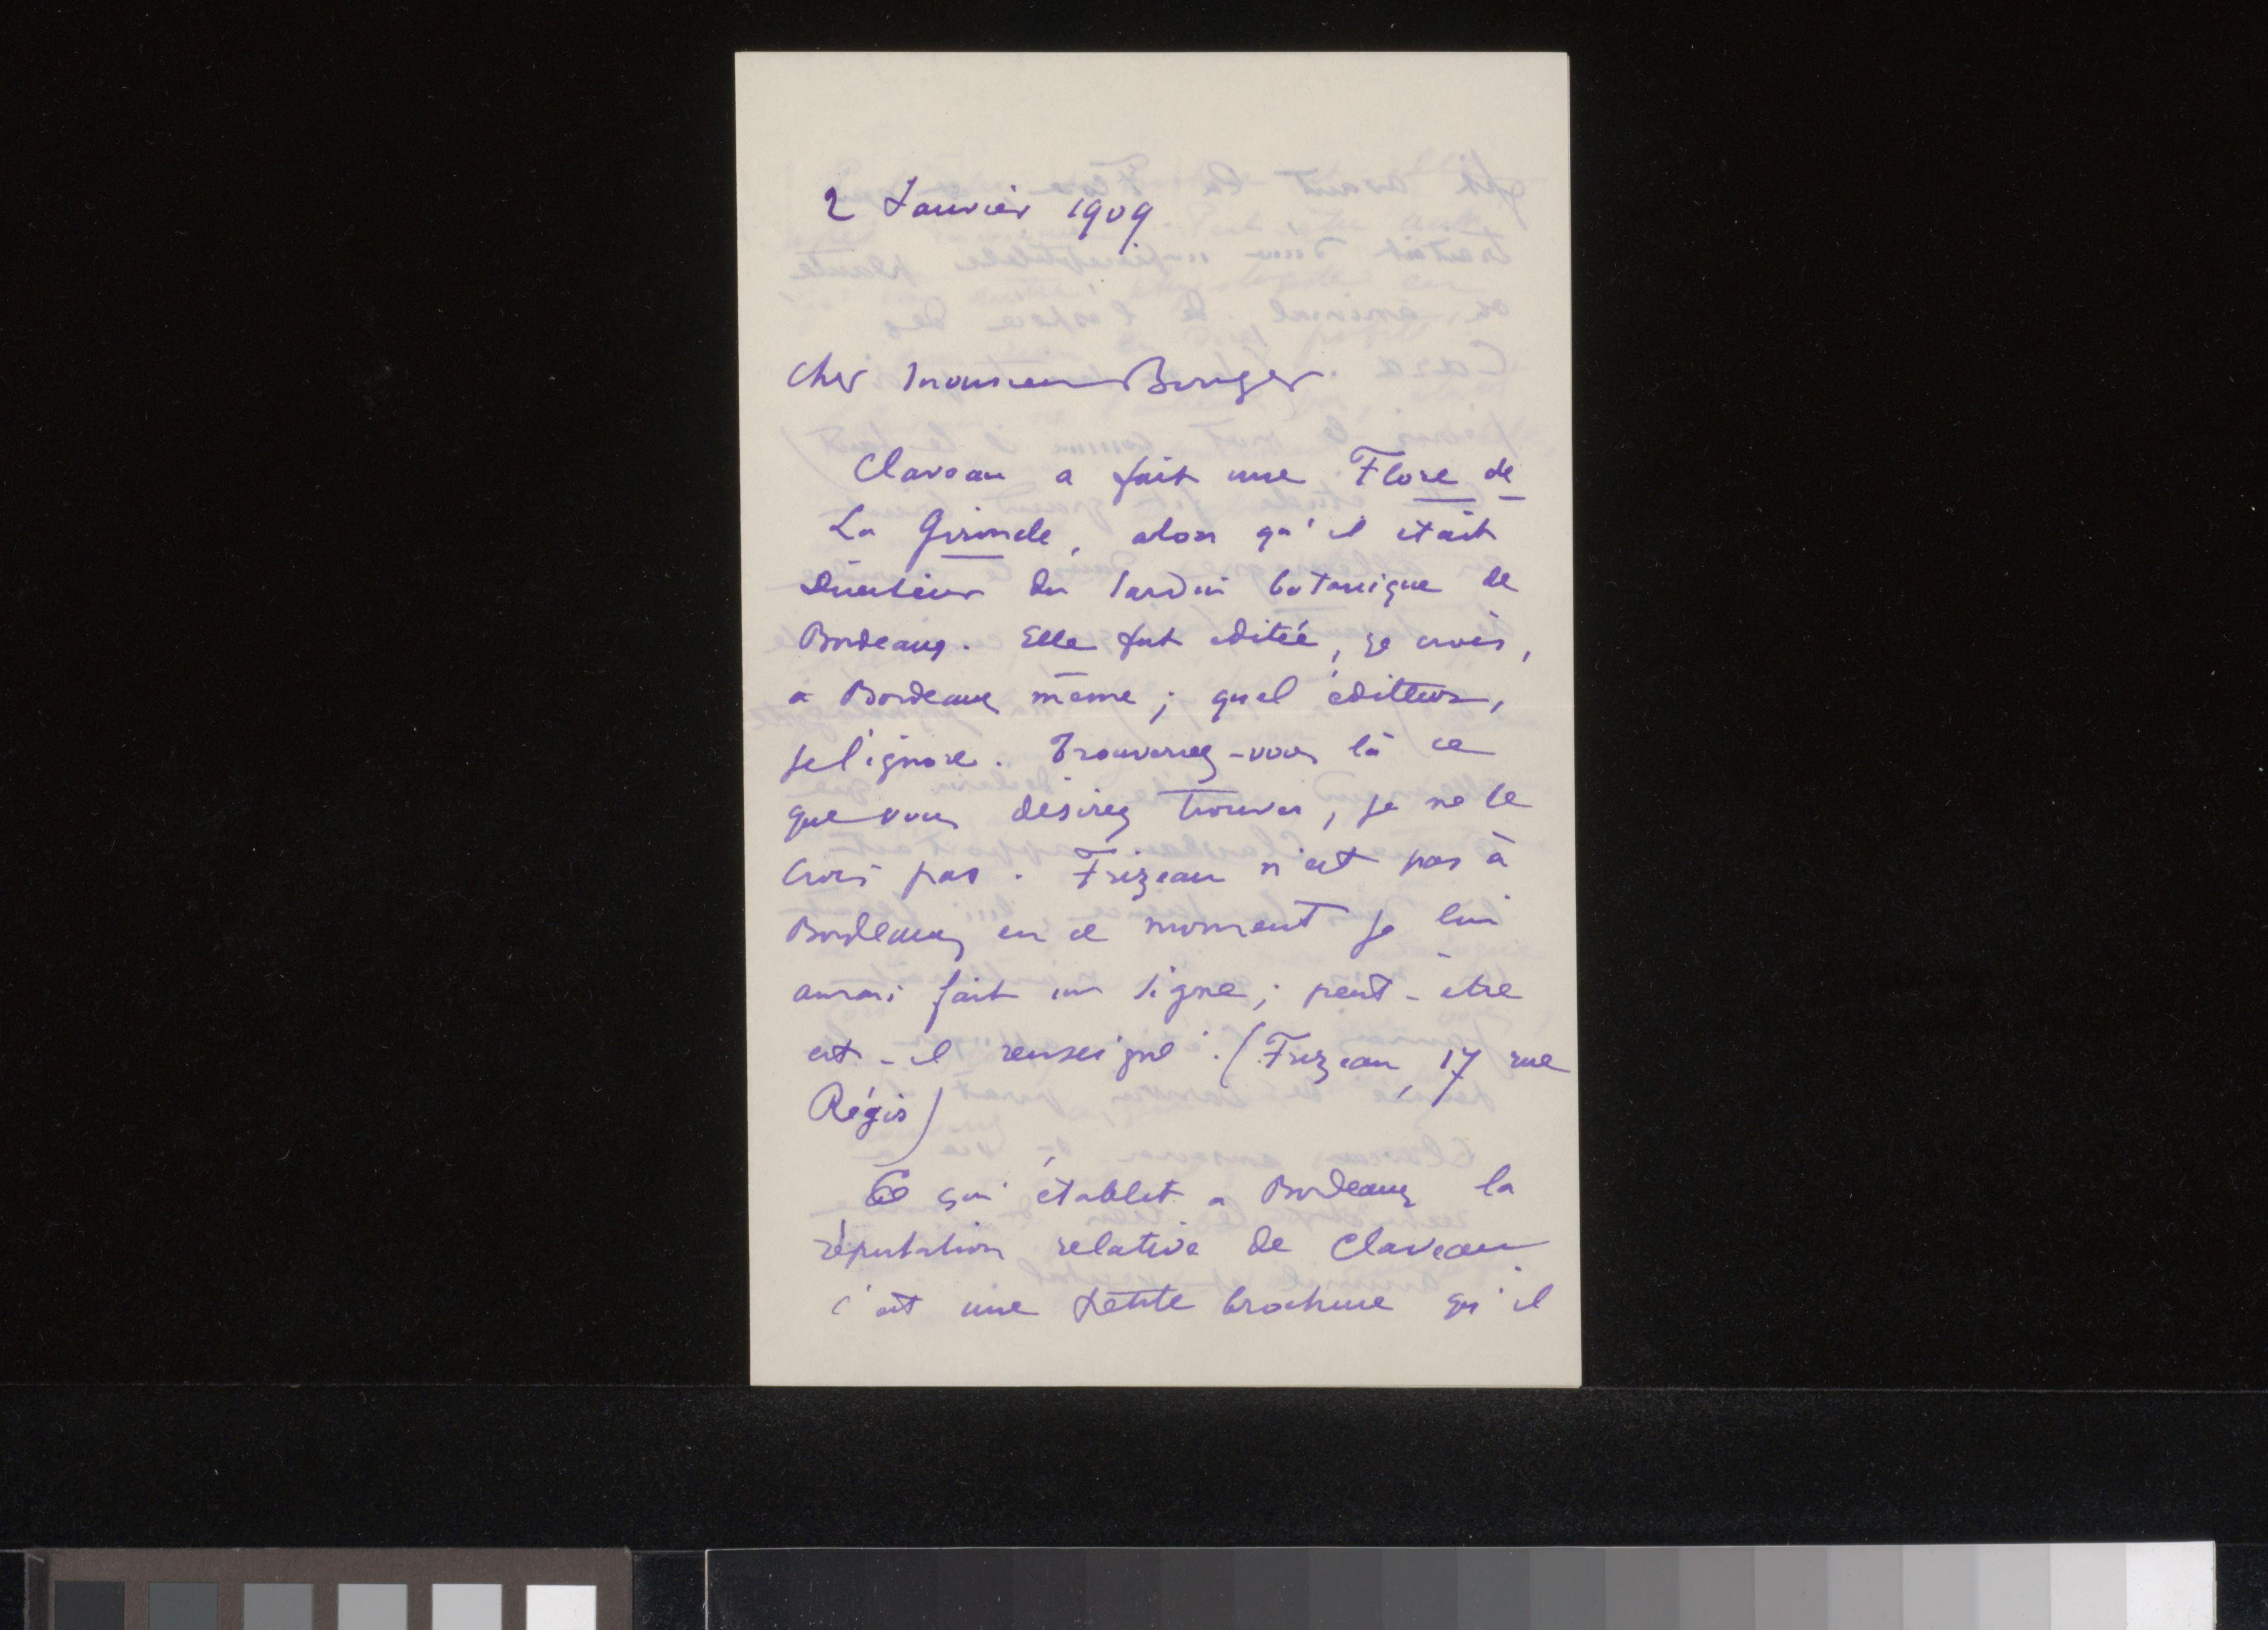 2 Janvier 1909
Cher Monsieur Bonger
Claveau a fait une Flore de
La Gironde, alors qu'il était
Directeur du Jardin botanique de
Bordeaux. Elle fut editée, je crois,
a Bordeaux même ; quel éditeur,
je l'ignore. Trouverez-vous là ce
que vous désirez trouver, je ne le
crois pas. Frizeau n'est pas à
Bordeaux en ce moment je lui
aurai fait un signe ; peut-être
est-il renseigné. (Frizeau, 17 rue
Régis)
Ce qui établit a Bordeaux la
réputation relative de Claveau
c'est une petite brochure qu'il